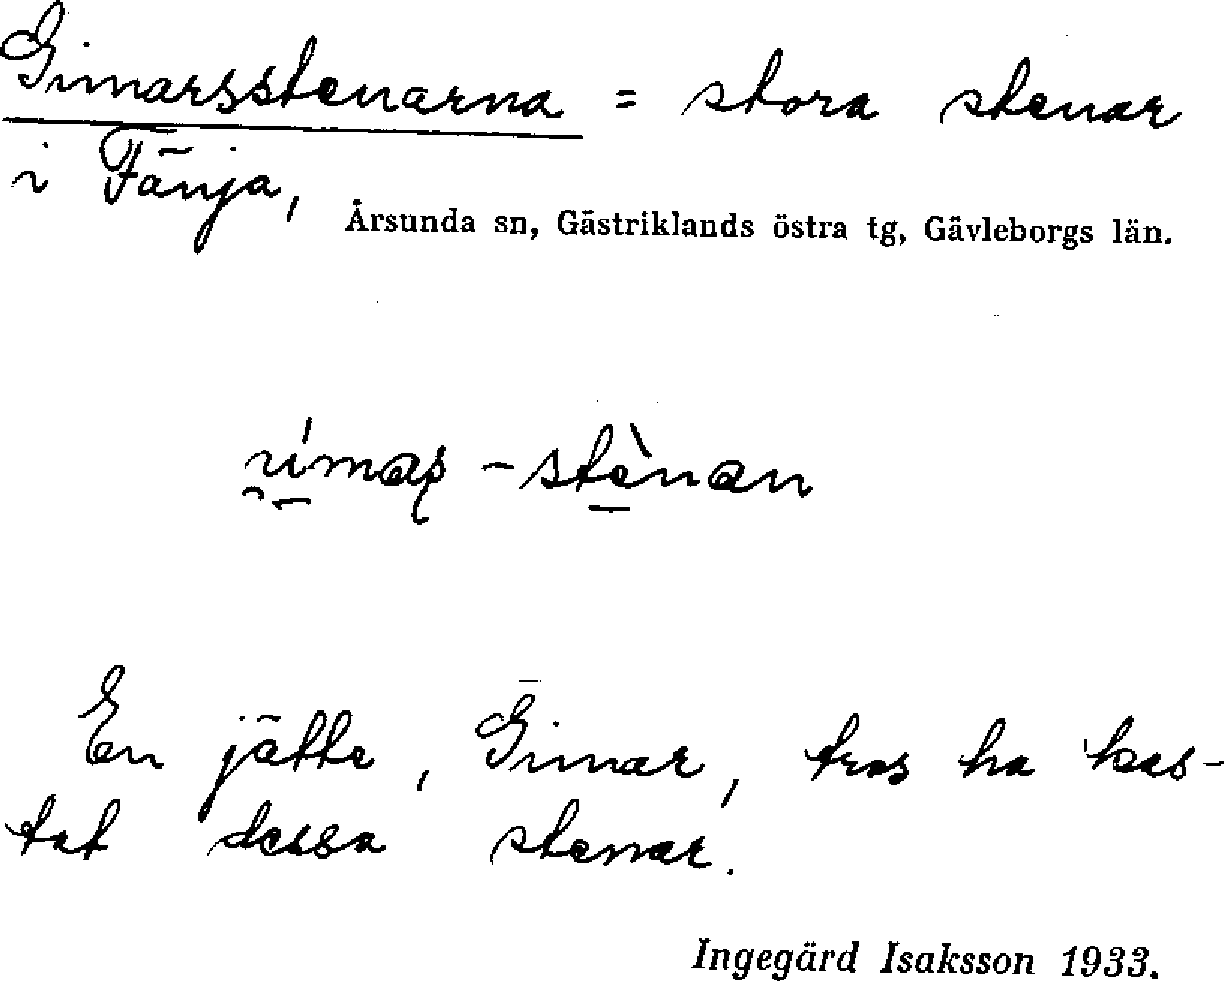 Gimarsstenarna = stora stenar
i Fänja, Årsunda sn, Gästriklands östra tg, Gävleborgs län.
-stènan
En jätte, Gimar, tros ha kas-
tat dessa stenar.
Ingegärd Isaksson 1933.